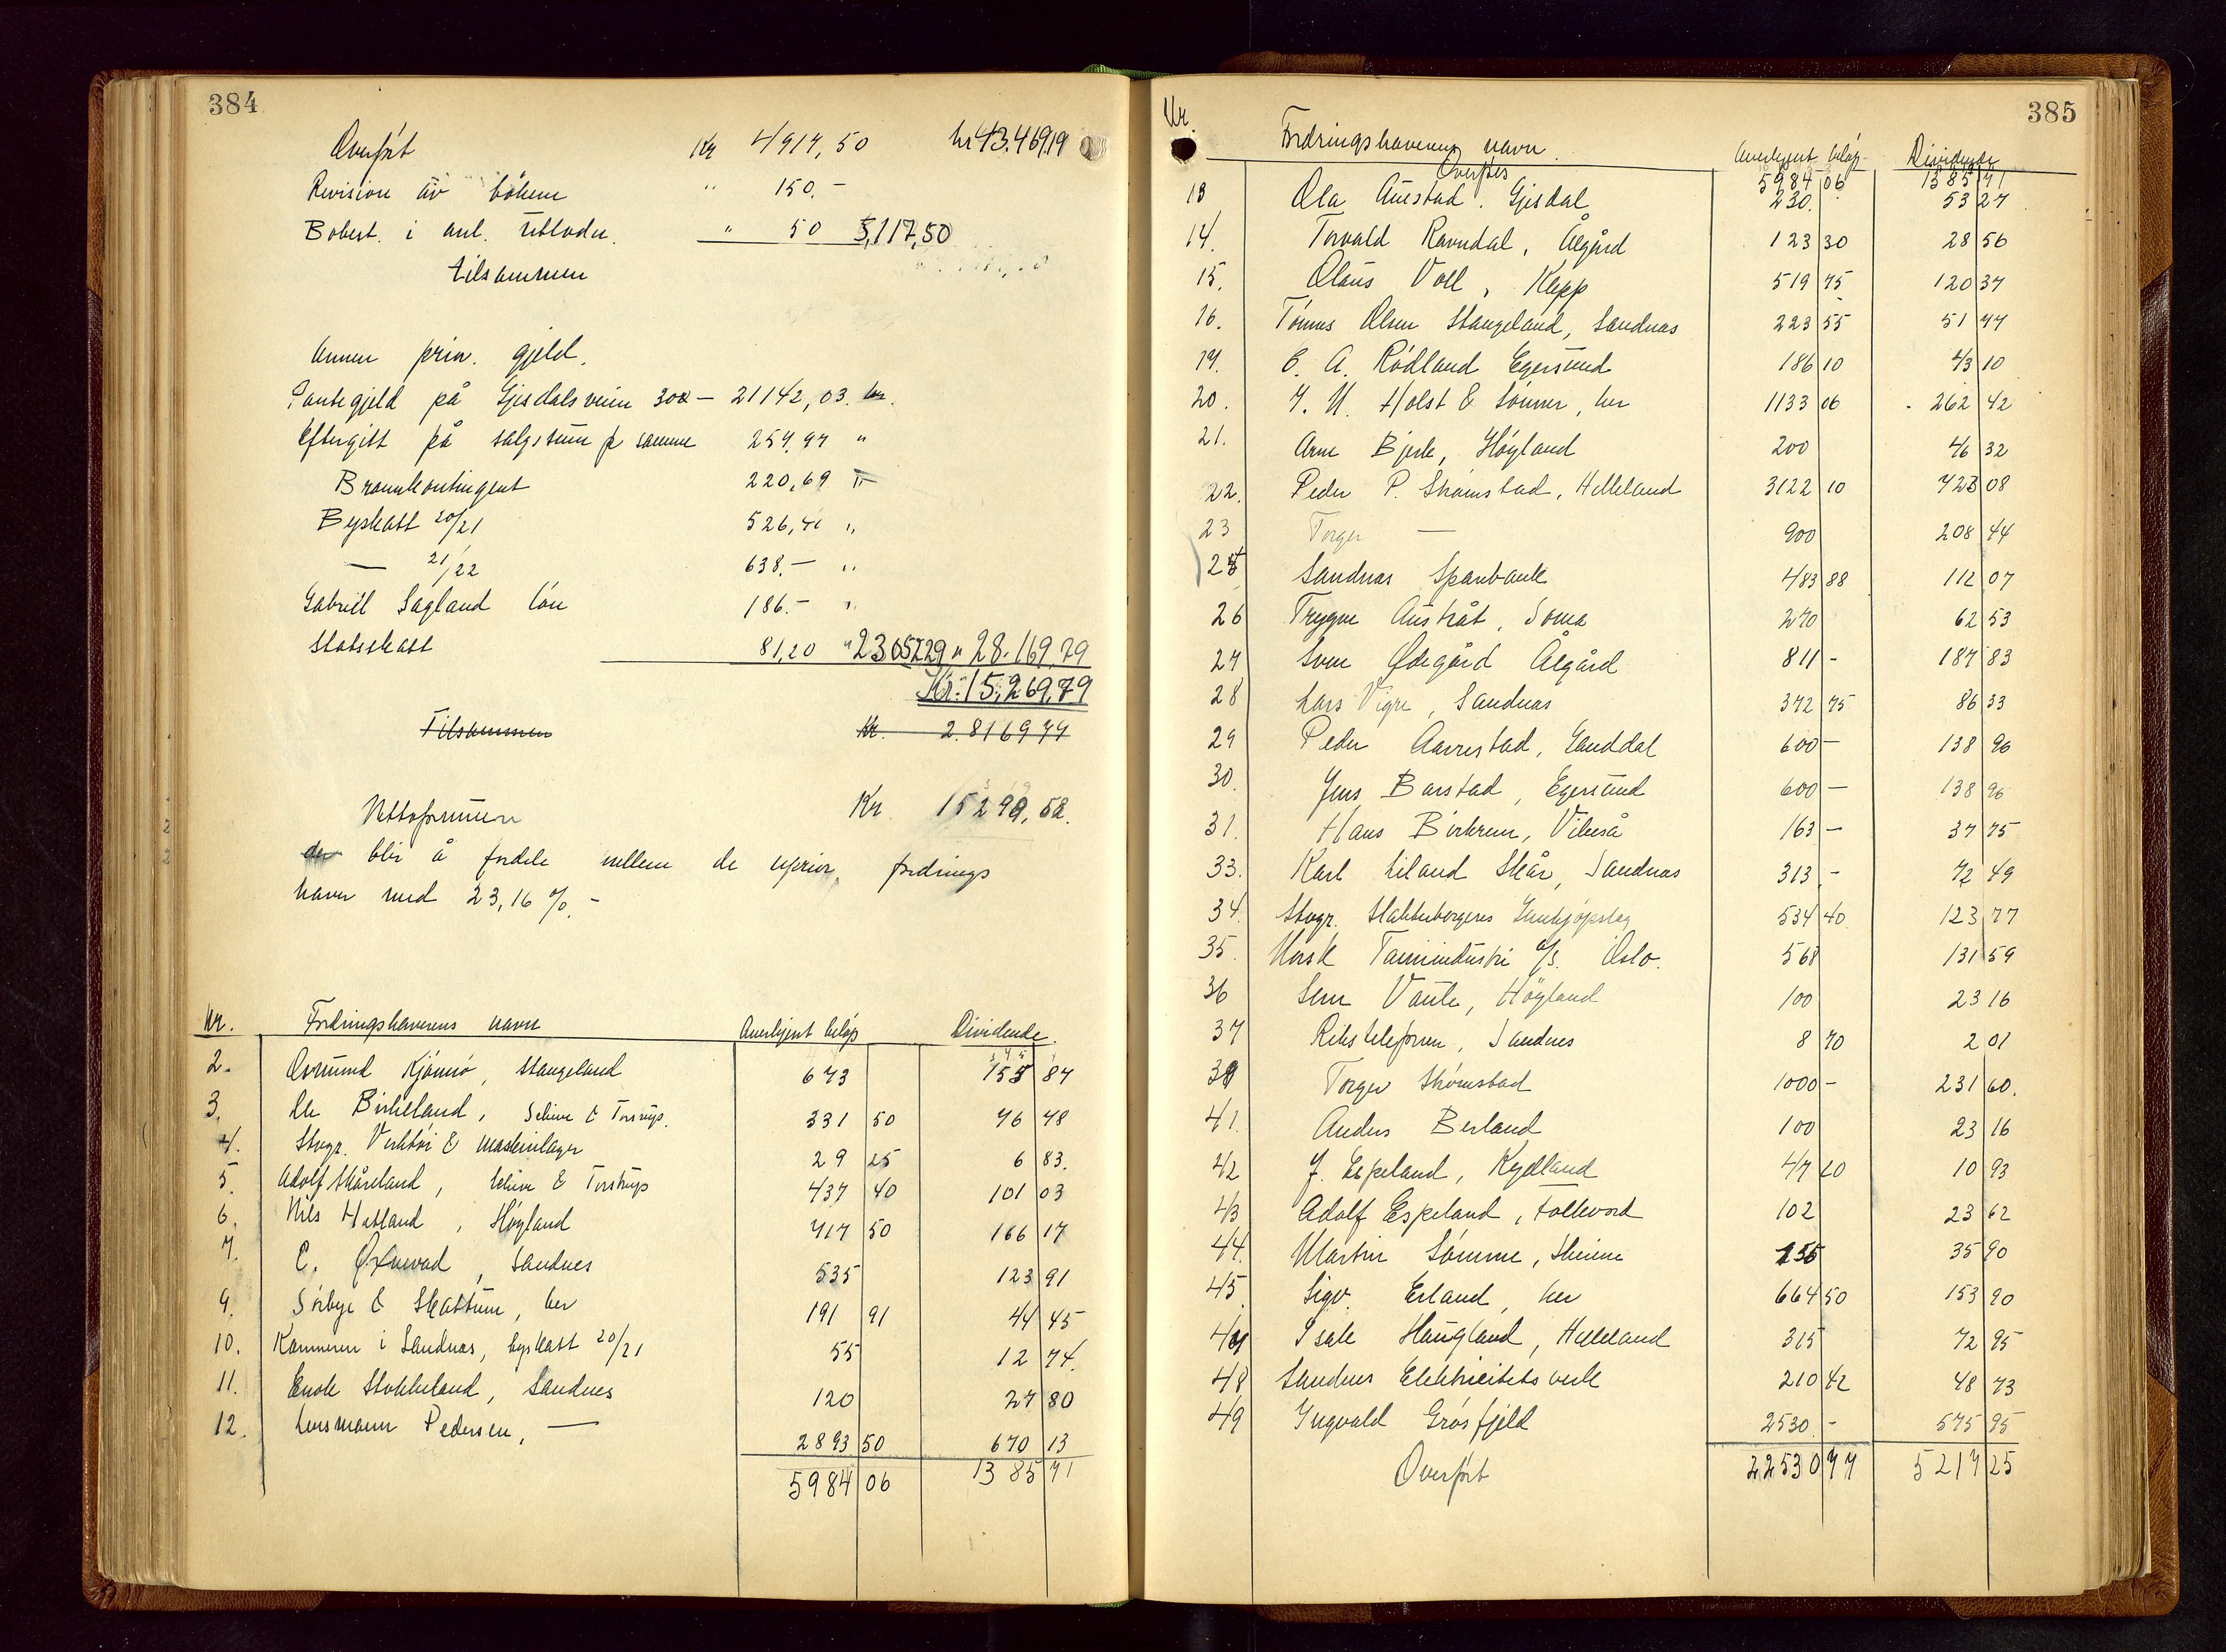 384
Overført Kr 4917,50 kr 43.469,19
Revision av bökene " 150.-
Bobest. i anl. utlodn. " 50 5,117,50
tilsammen
Annen priv. gjeld.
Pantegjeld på Gjesdalsveien 30x - 21142,03 kr.
Eftergitt på salgssum f. samme 257,97 "
Brannkontingent 220,69 "
Byskatt 20/21 526,40 "
— 21/22 638.- "
Gabriel Sagland lön 186.- "
Statsskatt 81,20 " 23052,29 " 28.169,79
Kr. 15,269,79
Tilsammen Kr. 2.816979
Nettoformuen Kr 15299,52.
der blir å fordele mellem de uprior. fordrings
havere med 23,16 %.-
Nr. Fordringshaverens navn Anerkjent beløp Dividende.
2. Osmund Kjönnö, Stangeland 673 155 87
3. Ole Birkeland, Schive & Torstrups. 331 50 76 78
4. Stvgr. Verktöi & maskinlager 29 25 6 83.
5. Adolf Skåreland, Schive & Torstrups 437 40 101 03
6. Nils Hatland, Høyland 717 50 166 17
7. C. Øxnevad, Sandnes 535 123 91
9. Sörbye & Skattum, her 191 91 44 45
10. Kæmneren i Sandnæs, byskatt 20/21 55 12 74.
11. Enok Stokkeland, Sandnes 120 27 80
12. Lensmann Pedersen, — 2893 50 670 13
5984 06 1385 71
385
Nr. Fordringshaverens navn Anerkjent beløp Dividende
Overføres 5984 06 1385 71
13 Ola Auestad. Gjesdal 230. 53 27
14. Torvald Ravndal, Ålgård 123 30 28 56
15. Olaus Voll, Klepp 519 75 120 37
16. Tönnes Olsen Stangeland, Sandnæs 223 55 51 77
17. C. A. Rödland Egersund 186 10 43 10
20. I. N. Holst & Sönner, her 1133 06 262 42
21. Arne Bjerk, Höyland 200 46 32
22. Peder P. Skømstad, Helleland 3122 10 723 08
23 Torger — 900 208 44
25 Sandnæs Sparebank 483 88 112 07
26 Trygve Austråt, Soma 270 62 53
27 Sven Ødegård Ålgård 811 - 187 83
28 Lars Vigre, Sandnæs 372 75 86 33
29 Peder Aarrestad, Ganddal 600 - 138 96
30. Jens Barstad, Egersund 600 - 138 96
31. Hans Birkrem, Vikeså 163 - 37 75
33. Karl Liland Skår, Sandnæs 313 - 72 49
34. Stvgr. Slakterborgeres Innkjøpslag 534 40 123 77
35. Norsk Tauindustri a/s. Oslo. 568 131 59
36 Sem Vaule, Höyland 100 23 16
37 Rikstelefonen, Sandnes 8 70 2 01
39 Torger Skömstad 1000 - 231 60.
41. Anders Berland 100 23 16
42 J. Espeland, Kydland 47 20 10 93
43 Adolf Espeland, Follevord 102 23 62
44. Martin Sömme, Skeiene 155 35 90
45. Sigv. Erland, her 664 50 153 90
46 Isak Haugland, Helleland 315 72 95
48 Sandnes Elektricitetsverk 210 42 48 73
49 Ingvald Gråsfjeld 2530 - 575 95
Overført 22530 77 5217 25